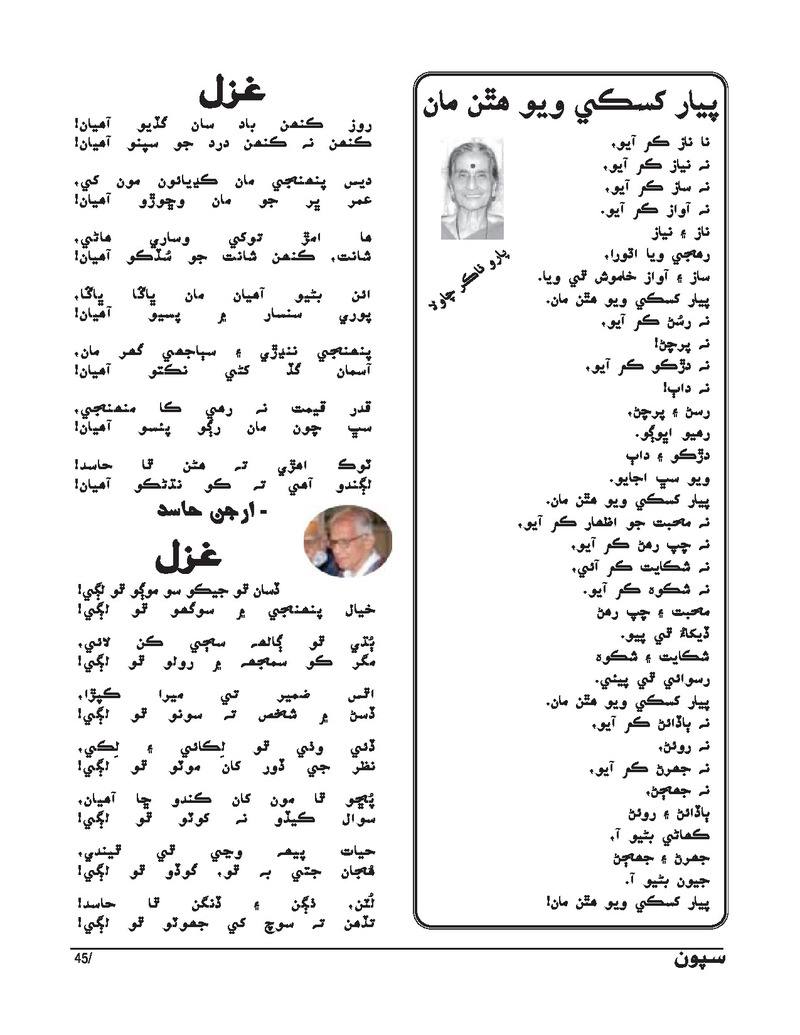 پيار کسڪي ويو هٿن مان
نا ناز ڪر آيو،
نہ نياز ڪر آيو،
نہ ساز ڪر آيو،
نہ آواز ڪر آيو.
ناز ۽ نياز
رهجي ويا اڻورا،
ساز ۽ آواز خاموش ٿي ويا.
پيار کسڪي ويو هٿن مان.
نہ رسڻ ڪر آيو،
نہ پرچڻ!
نہ دڙڪو ڪر آيو،
نہ داٻ!
رسڻ ۽ پرچڻ،
رهيو اڀوڳو.
دڙڪو ۽ داٻ
ويو سڀ اجايو.
پيار کسڪي ويو هٿن مان.
نہ محبت جو اظهار ڪر آيو،
نہ چپ رهڻ ڪر آيو،
نہ شڪايت ڪر آئي،
نہ شڪوه ڪر آيو.
محبت ۽ چپ رهڻ
ڏيکاءُ ٿي پيو.
شڪايت ۽ شڪوه
رسوائي ٿي پيئي.
پيار کسڪي ويو هٿن مان.
نہ ٻاڏائڻ ڪر آيو،
نہ روئڻ،
نہ جھرڻ ڪر آيو،
نہ جھڄڻ،
ٻاڏائڻ ۽ روئڻ
ڪهاڻي بڻيو آ،
جھرڻ ۽ جھڄڻ
جيون بڻيو آ.
پيار کسڪي ويو هٿن مان!
پارو ٺاڪر چاولا
غزل
روز ڪنهن ياد سان گڏيو آهيان!
ڪنهن نہ ڪنهن درد جو سپنو آهيان!
ديس پنهنجي مان ڪڍيائون مون کي،
عمر ڀر جو مان وڇوڙو آهيان!
ها امڙ توکي وساري هاڻي،
شانت، ڪنهن شانت جو سُڏڪو آهيان!
ائن بڻيو آهيان مان ڀاڱا ڀاڱا،
پوري سنسار ۾ پسيو آهيان!
پنهنجي ننڍڙي ۽ سٻاجھي گھر مان،
آسمان گڏ کڻي نڪتو آهيان!
قدر قيمت نہ رهي ڪا منهنجي،
سڀ چون مان رڳو پئسو آهيان!
ٽوڪ اهڙي تہ هڻن ٿا حاسد!
لڳندو آهي تہ ڪو نڌڻڪو آهيان!
- ارجن حاسد
غزل
ڏسان ٿو جيڪو سو موڳو ٿو لڳي!
خيال پنهنجي ۾ سوگھو ٿو لڳي!
ٻُڌي ٿو ڳالهہ سڄي ڪن لائي،
مگر ڪو سمجھہ ۾ رولو ٿو لڳي!
اٿس ضمير تي ميرا ڪپڙا،
ڏسڻ ۾ شخص تہ سوٺو ٿو لڳي!
ڏئي وٺي ٿو لِڪائي ۽ لِڪي،
نظر جي ڏور کان موٽو ٿو لڳي!
پُڇو ٿا مون کان ڪندو ڇا آهيان،
سوال ڪيڏو نہ کوٽو ٿو لڳي!
حيات پيهہ وڃي ٿي ٿيندي،
هُڃان جتي بہ ٿو، گوڏو ٿو لڳي!
لُٽن، ٺڳن ۽ ڏنگن ٿا حاسد!
تڏهن تہ سوچ کي جھوٽو ٿو لڳي!
45/
سپون